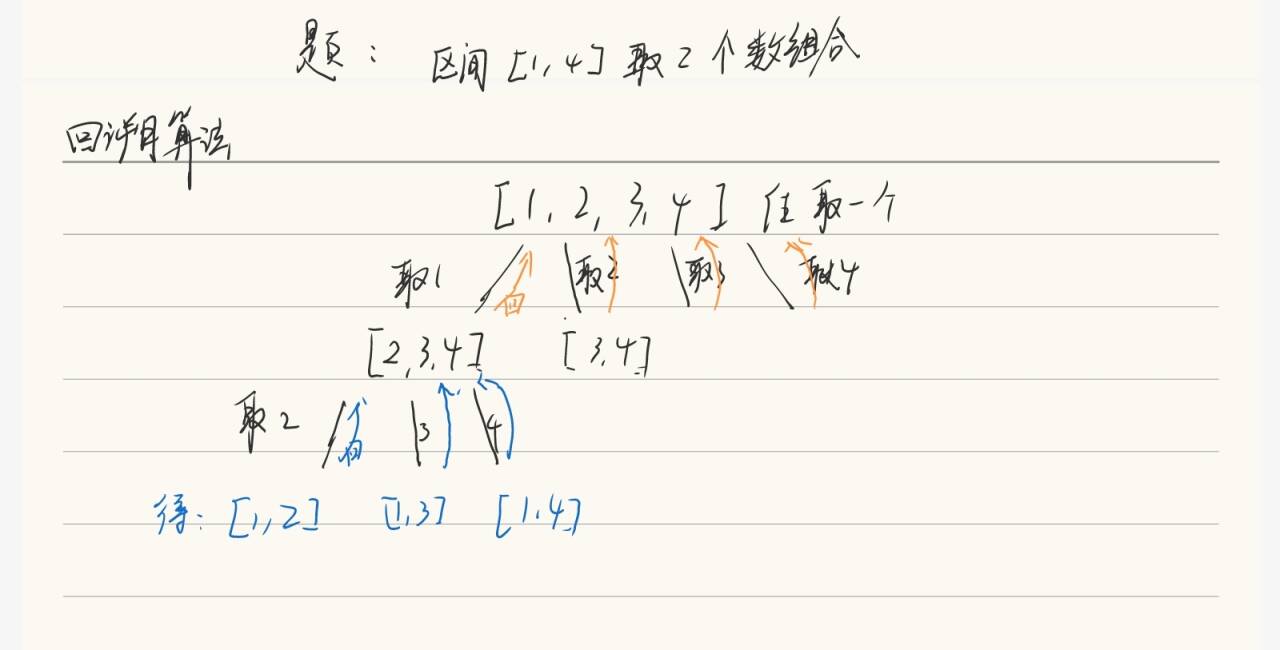 题： 区间 [1,4] 取 2 个数组合
回溯算法
[1, 2, 3, 4] 任取一个
取1 回 取2 取3 取4
[2,3,4] [3,4]
取2 回 3 4
得: [1,2] [1,3] [1,4]